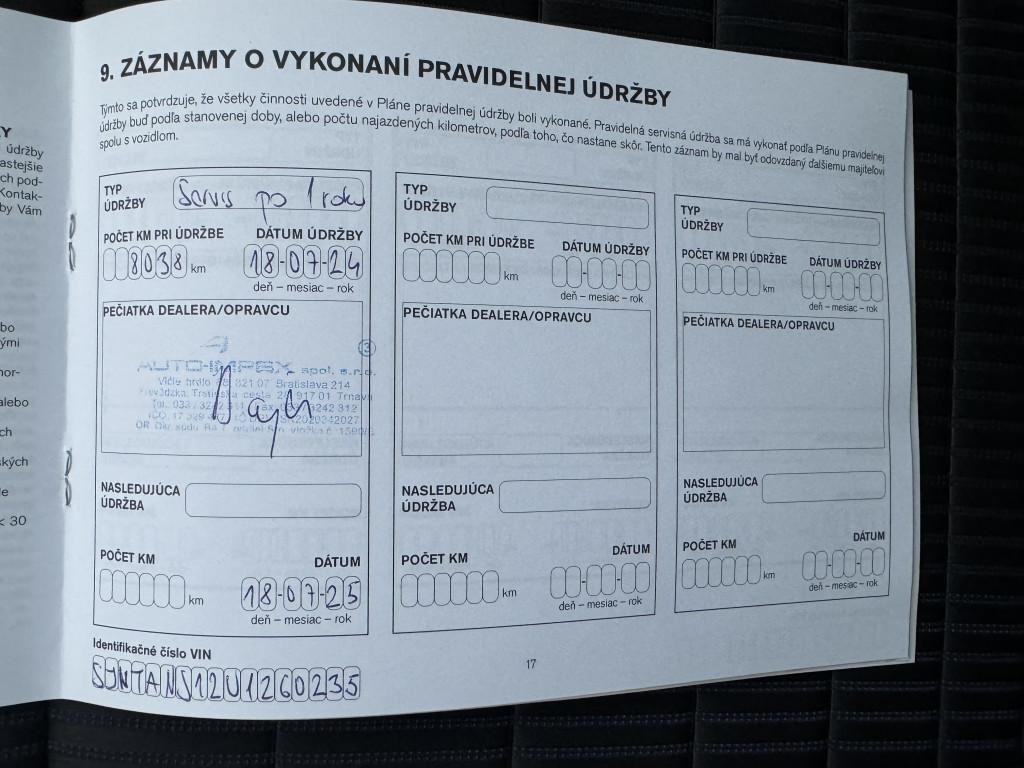 KY
údržby
astejšie
ch pod-
Kontak-
by Vám
bo
ými
nor-
alebo
ch
ských
le
< 30
9. ZÁZNAMY O VYKONANÍ PRAVIDELNEJ ÚDRŽBY
Týmto sa potvrdzuje, že všetky činnosti uvedené v Pláne pravidelnej údržby boli vykonané. Pravidelná servisná údržba sa má vykonať podľa Plánu pravidelnej
údržby buď podľa stanovenej doby, alebo počtu najazdených kilometrov, podľa toho, čo nastane skôr. Tento záznam by mal byť odovzdaný ďalšiemu majiteľovi
spolu s vozidlom.
TYP
ÚDRŽBY
Servis po 1 roku
POČET KM PRI ÚDRŽBE DÁTUM ÚDRŽBY
8038 km 18-07-24
deň – mesiac – rok
PEČIATKA DEALERA/OPRAVCU
3
AUTO-IMPEX spol. s r.o.
Vlčie hrdlo 821 07 Bratislava 214
cesta 917 01 Trnava
3242 312
2020342027
NASLEDUJÚCA
ÚDRŽBA
POČET KM DÁTUM
km 18-07-25
deň – mesiac – rok
Identifikačné číslo VIN
TYP
ÚDRŽBY
POČET KM PRI ÚDRŽBE DÁTUM ÚDRŽBY
km
deň – mesiac – rok
PEČIATKA DEALERA/OPRAVCU
NASLEDUJÚCA
ÚDRŽBA
POČET KM DÁTUM
km
deň – mesiac – rok
TYP
ÚDRŽBY
POČET KM PRI ÚDRŽBE DÁTUM ÚDRŽBY
km
deň – mesiac – rok
PEČIATKA DEALERA/OPRAVCU
NASLEDUJÚCA
ÚDRŽBA
POČET KM DÁTUM
km
deň – mesiac – rok
17